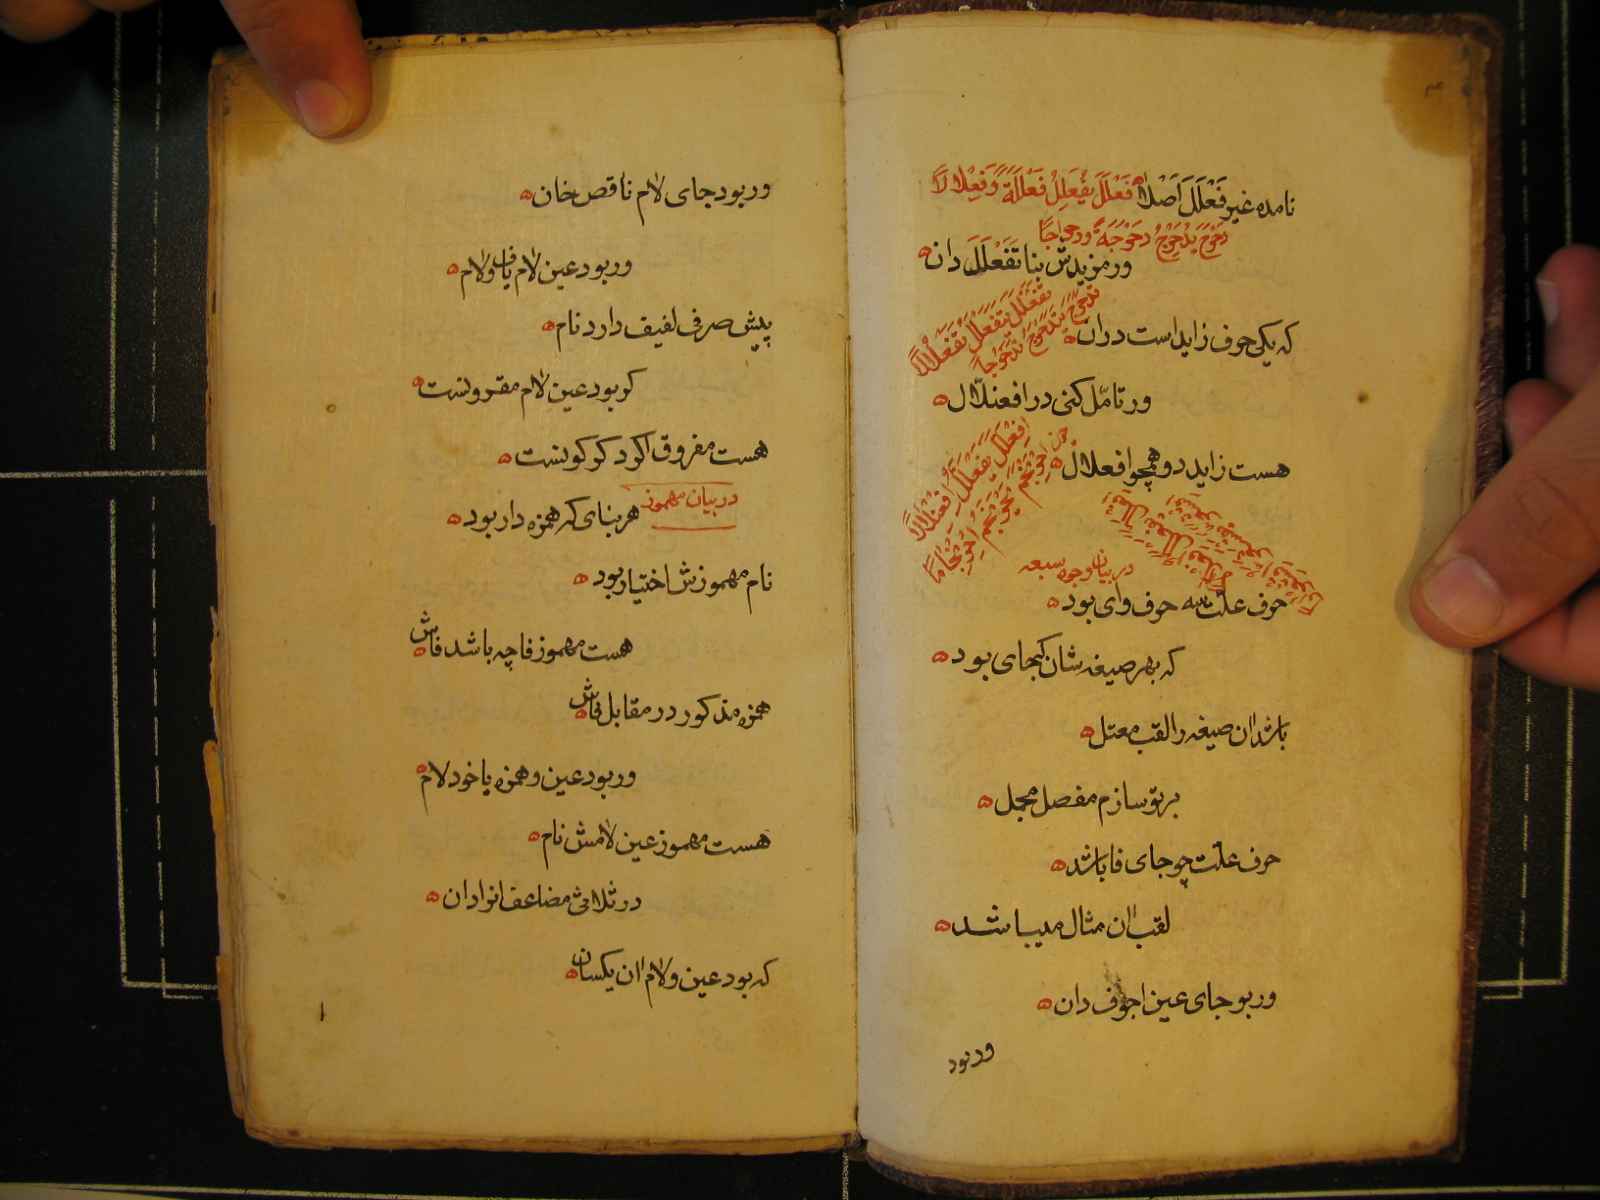 نامده غیر فَعْلَلَ اَصْلاً فَعْلَلَ یُفَعْلِلُ فَعْلَلَةً وَفِعْلَالاً
دَحْرَجَ یُدَحْرِجُ دَحْرَجَةً ودحراجاً
ور مزیدش بنا تَفَعْلَلَ دان
تَفَعْلَلَ یَتَفَعْلَلُ تَفَعْلُلاً
تَدَحْرَجَ یَتَدَحْرَجُ تَدَحْرُجاً
که یکی حرف زاید است دران
ور تامّل کنی در افعنلال
هست زاید دو همچو افعلّال
در بیان وجوه سبعه
حرف علّت سه حرف وای بود
که بهر صیغه شان کجای بود
باشد ان صیغه را لقب معتل
بر تو سازم مفصل مجمل
حرف علّت چو جای فا باشد
لقب ان مثال میباشد
ور بو جای عین اجوف دان
ور بود
ور بود جای لام ناقص خان
ور بود عین لام یا فا و لام
پیش صرفی لفیف دارد نام
کر بود عین لام مقرونست
هست مفروق اکرد کرکونست
در بیان مهموز
هر بنای که همزه دار بود
نام مهموزش اختیار بود
هست مهموز فا چه باشد فاش
همزه مذکور در مقابل فاش
ور بود عین و همزه یا خود لام
هست مهموز عین لامش نام
در ثلاثی مضاعف انرا دان
که بود عین و لام ان یکسان